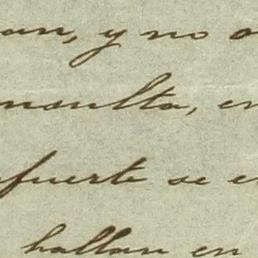 an, y no
nsulta, en
fuerte se
hallan en